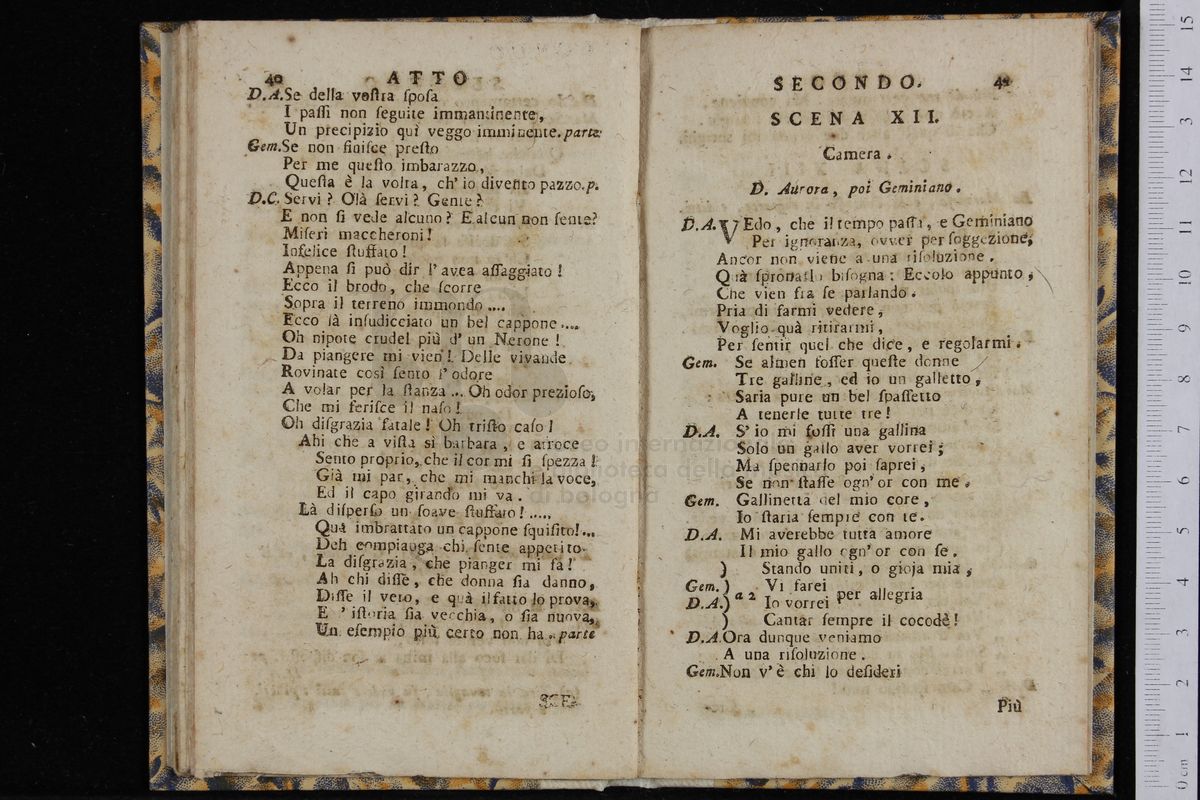 40 ATTO
D.A.Se della voſtra ſpoſa
I paſſi non ſeguite immantinente,
Un precipizio quì veggo imminente. parte
Gem.Se non finiſce preſto
Per me queſto imbarazzo,
Queſta è la volta, ch' io divento pazzo.p.
D.C. Servi? Olà ſervi? Gente?
E non ſi vede alcuno? E alcun non ſente?
Miſeri maccheroni!
Infelice ſtuffato!
Appena ſi può dir l' avea aſſaggiato!
Ecco il brodo, che ſcorre
Sopra il terreno immondo ....
Ecco là inſudicciato un bel cappone ....
Oh nipote crudel più d' un Nerone!
Da piangere mi vien! Delle vivande
Rovinate così ſento l' odore
A volar per la ſtanza ... Oh odor prezioſo,
Che mi feriſce il naſo!
Oh diſgrazia fatale! Oh triſto caſo!
Ahi che a viſta sì barbara, e atroce
Sento proprio, che il cor mi ſi ſpezza!
Già mi par, che mi manchi la voce,
Ed il capo girando mi va.
Là diſperſo un ſoave ſtuffato! .....
Quà imbrattato un cappone ſquiſito!...
Deh compianga chi ſente appetito
La diſgrazia, che pianger mi fa!
Ah chi diſſe, che donna ſia danno,
Diſſe il vero, e quà il fatto lo prova,
E l' iſtoria ſia vecchia, o ſia nuova,
Un eſempio più certo non ha. parte
SCE-
SECONDO. 41
SCENA XII.
Camera.
D. Aurora, poi Geminiano.
D.A. VEdo, che il tempo paſſa, e Geminiano
Per ignoranza, ovver per ſoggezione,
Ancor non viene a una riſoluzione.
Quà ſpronarlo biſogna: Eccolo appunto,
Che vien fra ſe parlando.
Pria di farmi vedere,
Voglio quà ritirarmi,
Per ſentir quel che dice, e regolarmi.
Gem. Se almen foſſer queſte donne
Tre galline, ed io un galletto,
Saria pure un bel ſpaſſetto
A tenerle tutte tre!
D.A. S' io mi foſſi una gallina
Solo un gallo aver vorrei;
Ma ſpennarlo poi ſaprei,
Se non ſtaſſe ogn' or con me.
Gem. Gallinetta del mio core,
Io ſtaria ſempre con te.
D.A. Mi averebbe tutta amore
Il mio gallo ogn' or con ſe.
) Stando uniti, o gioja mia,
Gem.) a 2 Vi farei per allegria
D.A.) Io vorrei
) Cantar ſempre il cocodè!
D.A.Ora dunque veniamo
A una riſoluzione.
Gem.Non v' è chi lo deſideri
Più